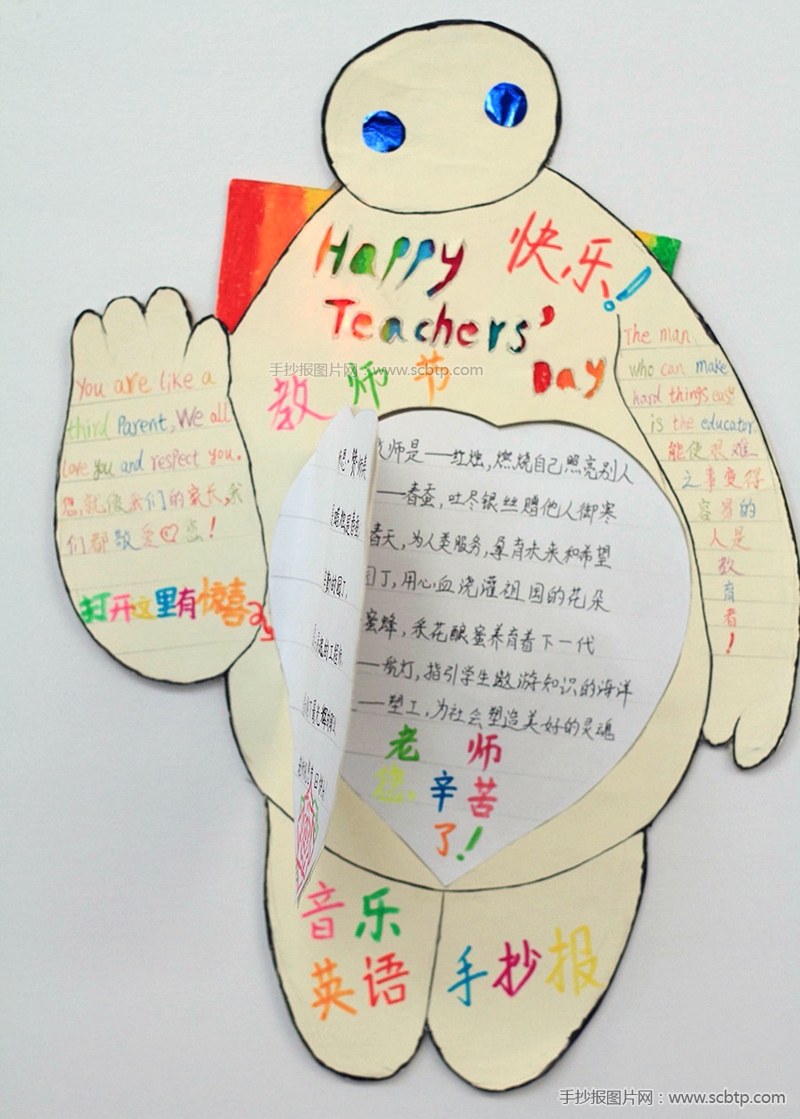 Happy 快乐!
Teachers'
Day
手抄报图片网:www.scbtp.com
教师节
You are like a
third Parent, We all
love you and respect you.
您,就像我们的家长,我
们都敬爱您!
打开这里有惊喜
The man
who can make
hard things easy
is the educator.
能使艰难
之事变得
容易的
人是
教
育
者
!
教师是——红烛,燃烧自己照亮别人
——春蚕,吐尽银丝赠他人御寒
春天,为人类服务,孕育未来和希望
园丁,用心血浇灌祖国的花朵
蜜蜂,采花酿蜜养育着下一代
——航灯,指引学生遨游知识的海洋
——塑工,为社会塑造美好的灵魂
老师
您,辛苦
了!
音乐
英语
手抄报
手抄报图片网:www.scbtp.com